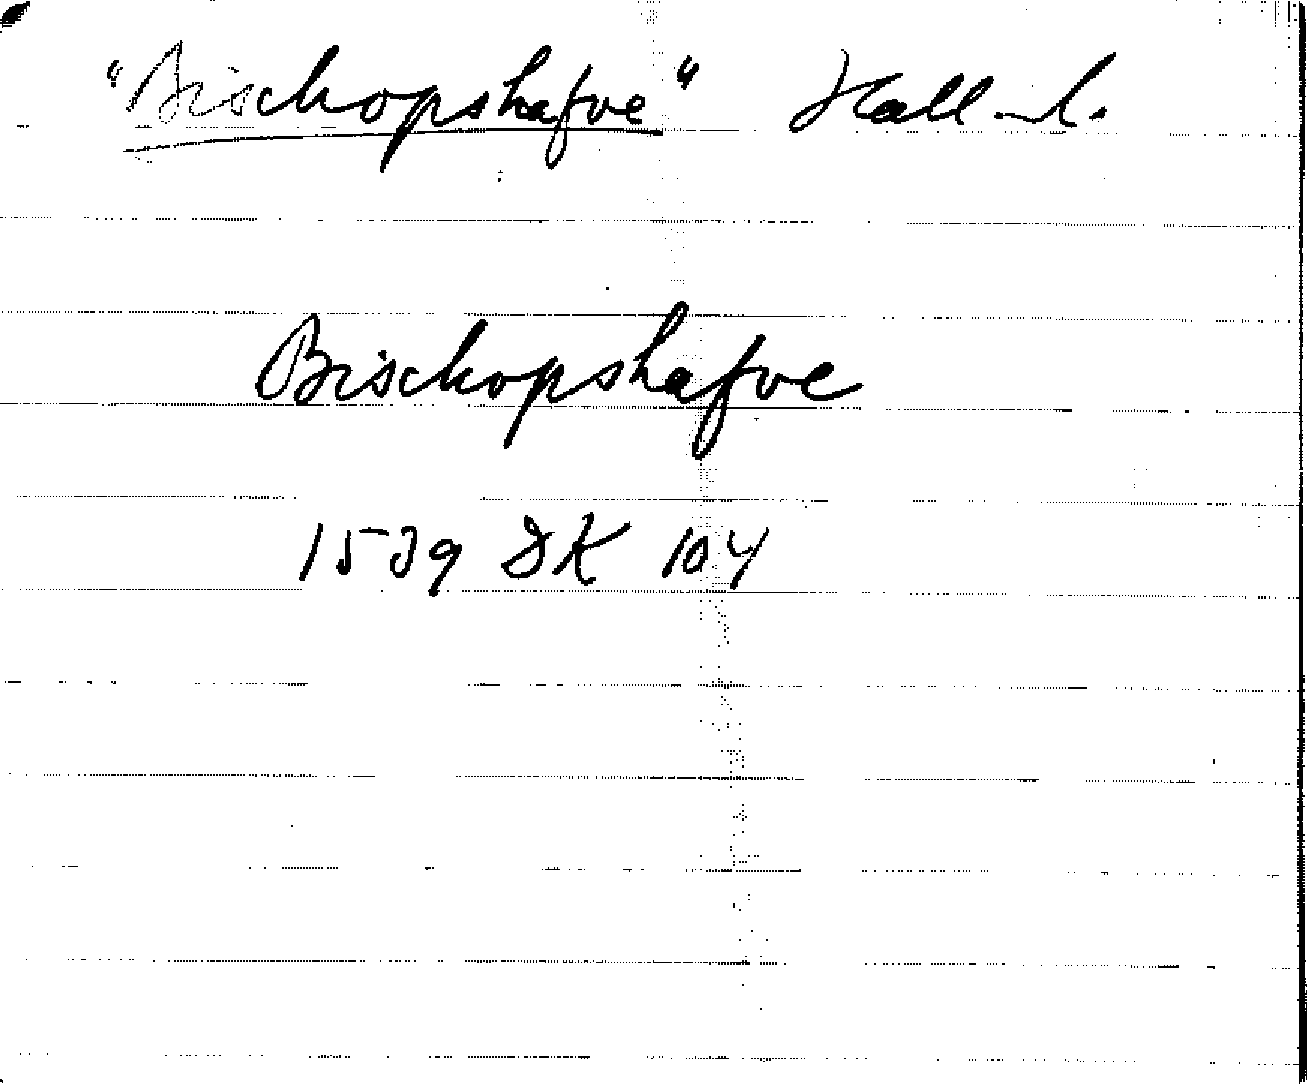 "Bischopshafve" Hall-l.
Bischopshafve
1539 JK 104